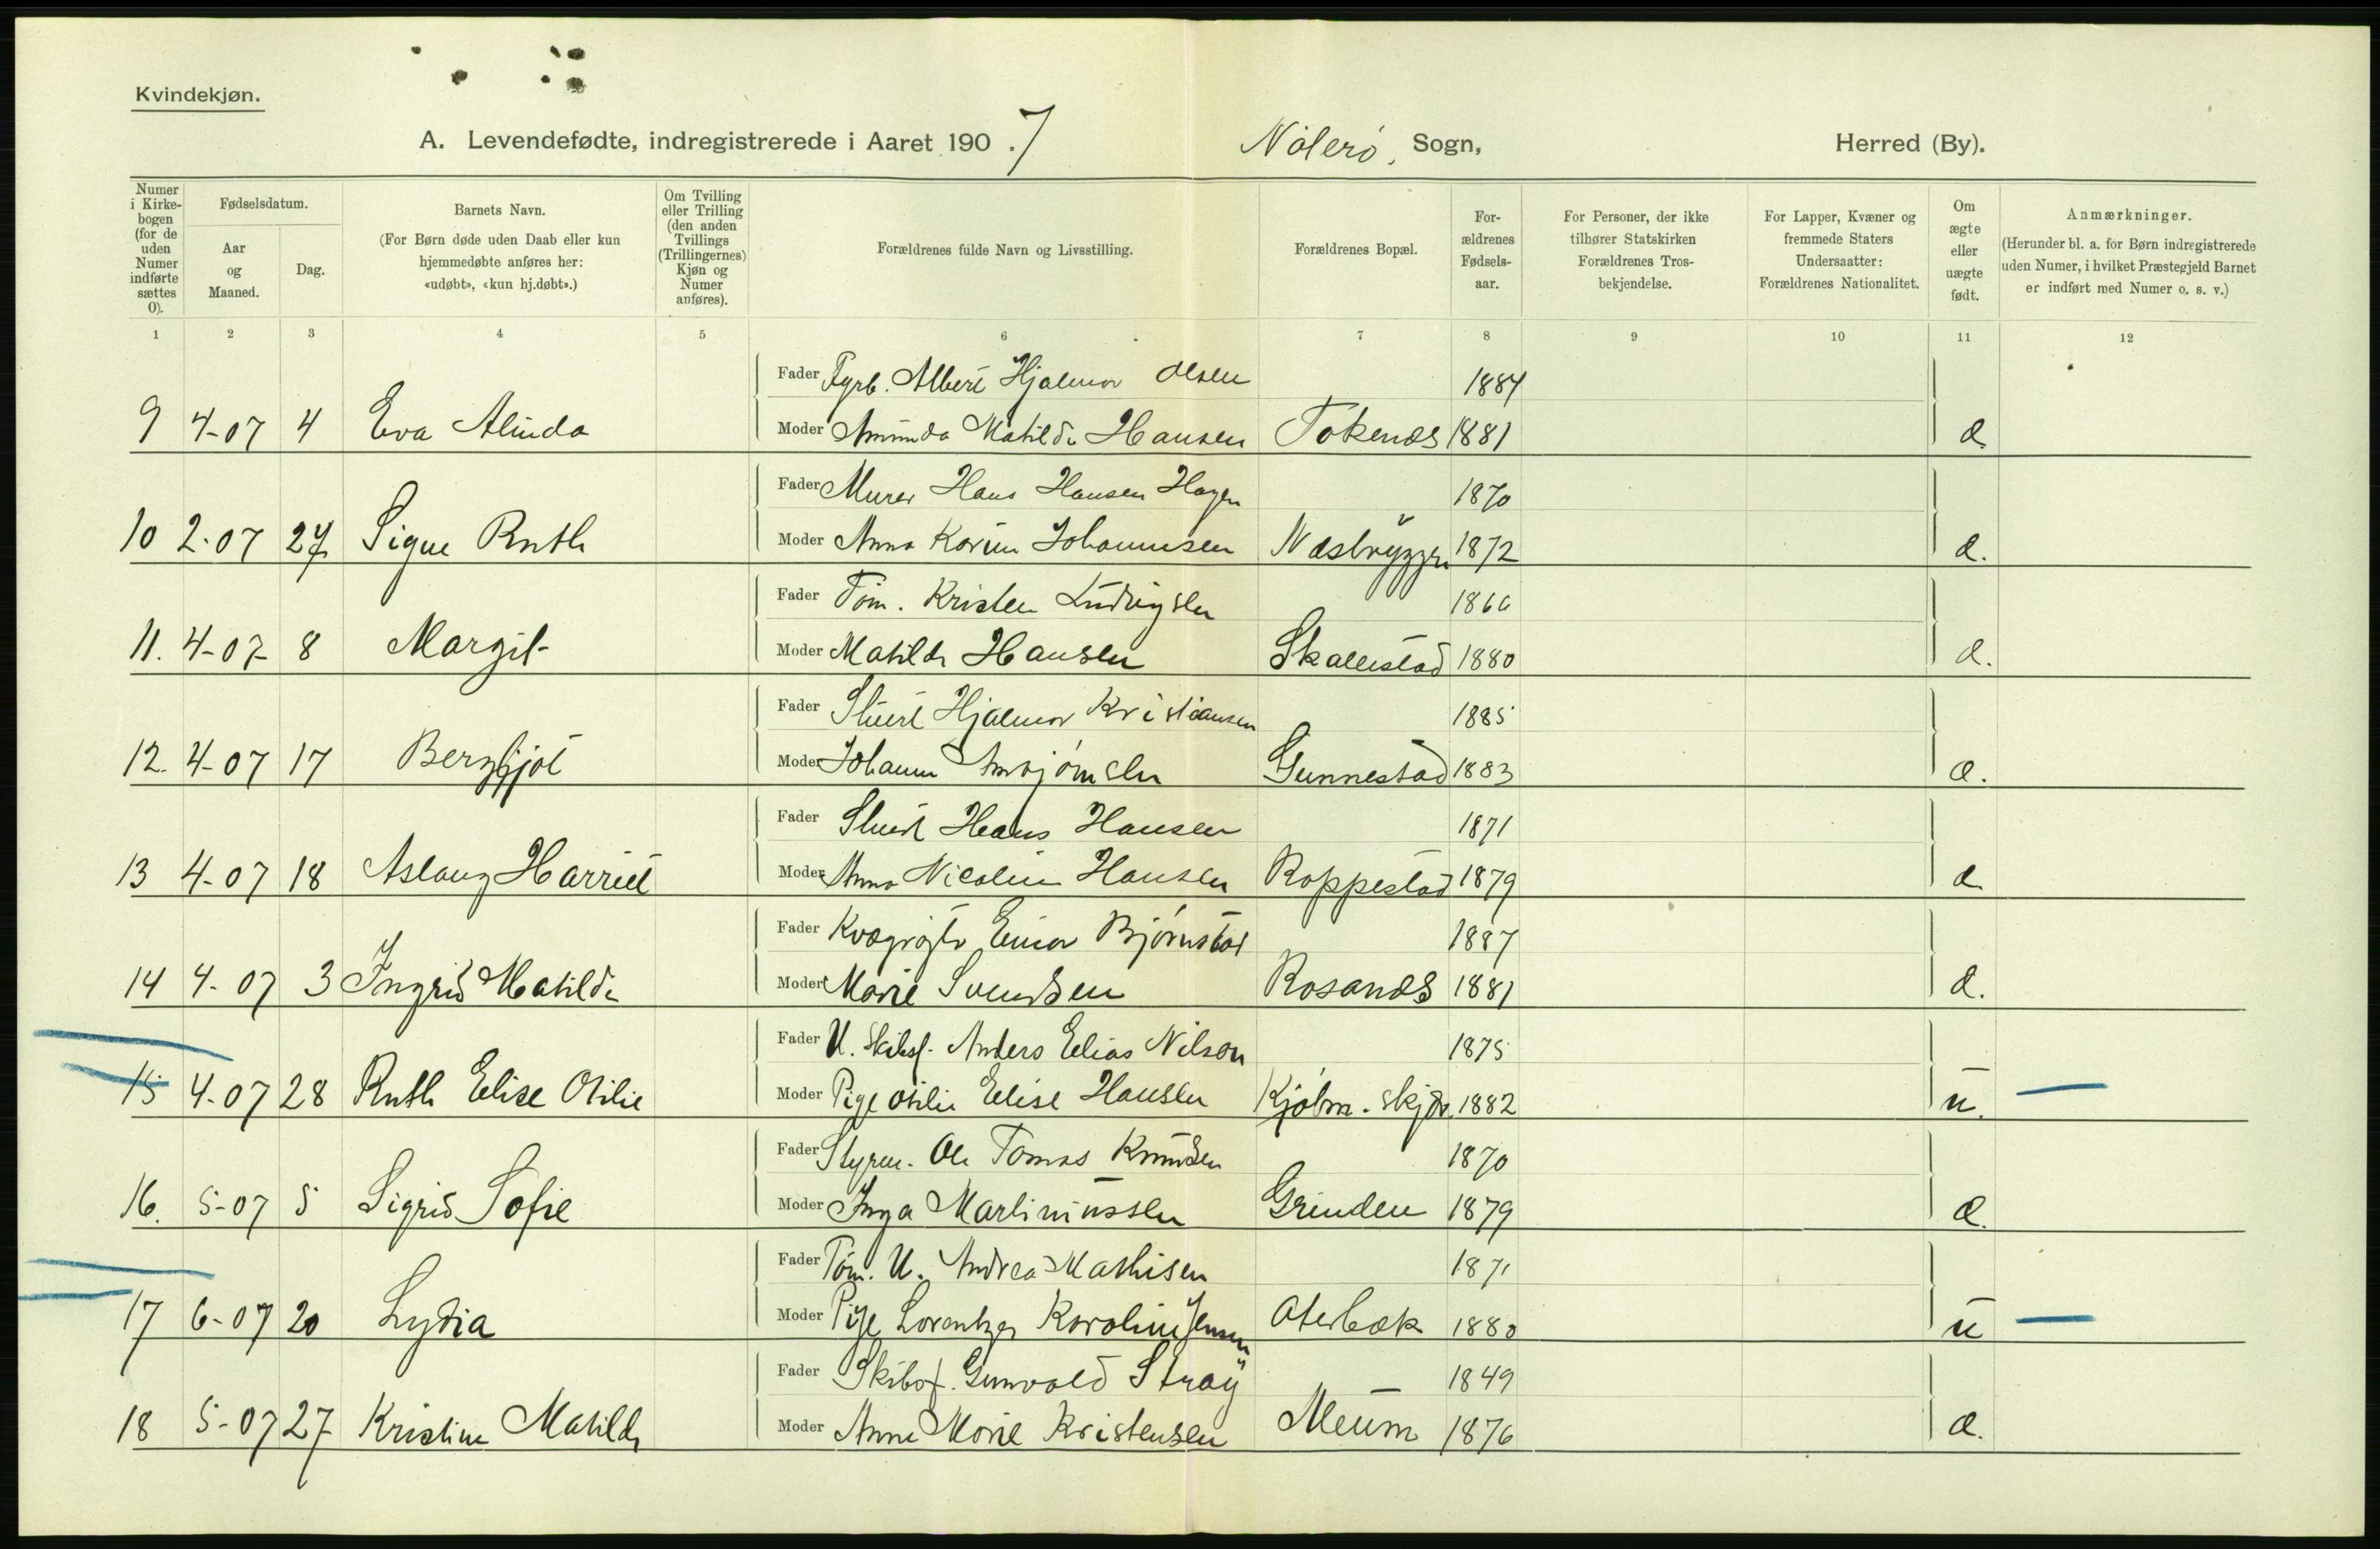 Kvindekjøn.
A. Levendefødte, indregistrerede i Aaret 1907. Nöterö. Sogn, Herred (By).
Numer i Kirke-bogen (for de uden Numer indførte sættes 0).
Fødselsdatum.
Aar og Maaned.
Dag.
Barnets Navn.
(For Børn døde uden Daab eller kun hjemmedøbte anføres her: «udøbt», «kun hj.døbt».)
Om Tvilling eller Trilling (den anden Tvillings (Trillingernes) Kjøn og Numer anføres).
Forældrenes fulde Navn og Livsstilling.
Forældrenes Bopæl.
For-ældrenes Fødsels-aar.
For Personer, der ikke tilhører Statskirken Forældrenes Tros-bekjendelse.
For Lapper, Kvæner og fremmede Staters Undersaatter: Forældrenes Nationalitet.
Om ægte eller uægte født.
Anmærkninger.
(Herunder bl. a. for Børn indregistrerede uden Numer, i hvilket Præstegjeld Barnet er indført med Numer o. s. v.)
1 2 3 4 5 6 7 8 9 10 11 12
Fader Fyrb. Albert Hjalmar Olsen 1884
9 4-07 4 Eva Alinda Moder Amunda Matilde Hansen 1881 æ
Fader Murer Hans Hansen Hagen 1870
10 2-07 27 Signe Ruth Moder Anna Karine Johannesen Næsbryggen 1872 æ.
Fader Töm. Kristen Ludvigsen
11. 4-07 8 Margit Moder Matilde Hansen Skallestad 1880 æ.
Fader Stuert Hjalmar Kristiansen 1885
12. 4-07 17 Bergljot Moder Johanne Gunnestad 1883 æ.
Fader Stuert Hans Hansen 1871
13 4-07 18 Aslaug Harriet Moder Anna Nicoline Hansen Roppestad 1879 æ
Fader Einar Björnstad 1887
14 4-07 3 Ingrid Matilde Moder Marie Svendsen Rosanes 1881 æ.
Fader U. Skibsf. Anders Elias Nilson 1875
15 4-07 28 Ruth Elise Otilie Moder Pige Otilie Elise Hansen 1882 u.
Fader Styrm. Ole Tomas Knudsen 1870
16. 5-07 5 Sigrid Sofie Moder Inga Martinussen Grinden 1879 æ.
Fader Töm. U. Andrea Mathisen 1871
17 6-07 20 Lydia Moder Pige Lorentze Karoline Jensen Oterbæk 1880 u
Fader Skibsf. Gunvald Stray 1849
18 5-07 27 Kristine Matilde Moder Anne Marie Kristensen Meum 1876 æ.